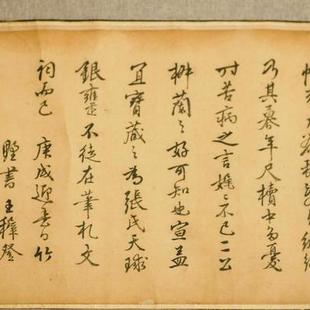 乃其暮年尺牘中多憂
时苦病之言娓々不已二公
椒蘭之好可知也宣并
宜寶藏之為張氏天球
銀甕不徒在筆札文
詞而已 庚戌迎春日竹
堅書王穉登